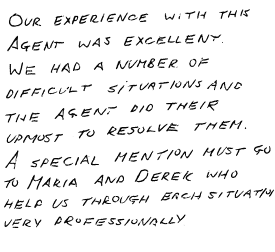 OUR EXPERIENCE WITH THIS
AGENT WAS EXCELLENT.
WE HAD A NUMBER OF
DIFFICULT SITUATIONS AND
THE AGENT DID THEIR
UPMOST TO RESOLVE THEM.
A SPECIAL MENTION MUST GO
TO MARIA AND DEREK WHO
HELD US THROUGH EACH SITUATION
VERY PROFESSIONALLY